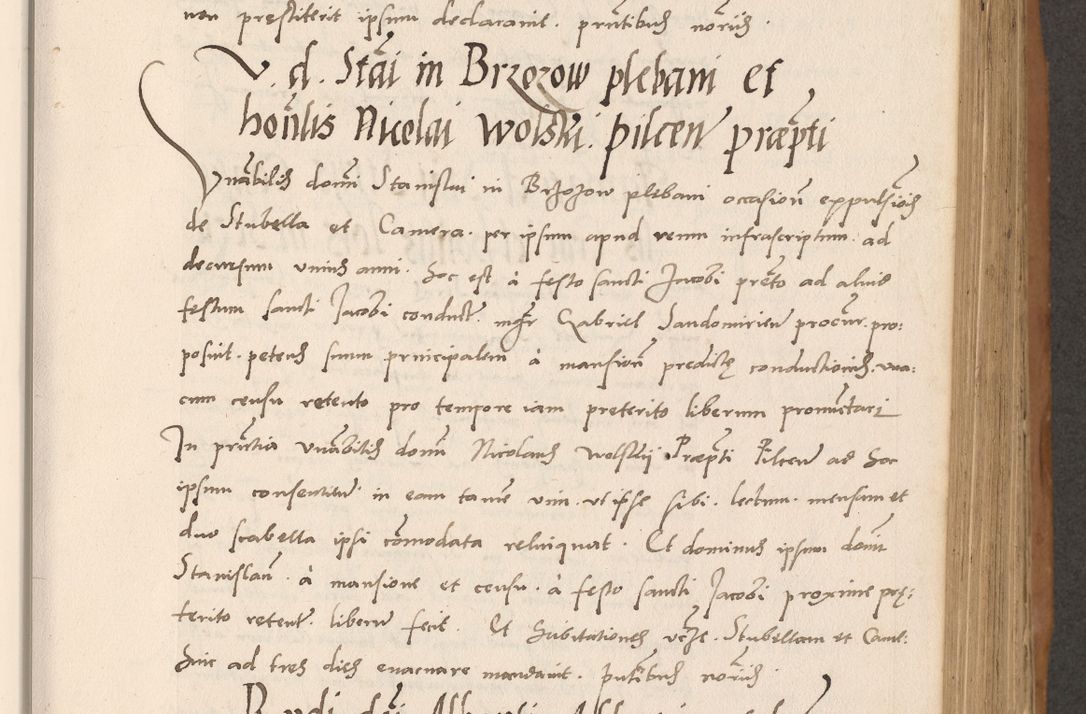 non pręstiterit ipsum declaravit. prntibus notariis.
V. d. Stai in Brzozow plebani et
honlis Nicolai Wolski. pilcen præpti
Vnabilis domi Stanislai in Brzozow plebani occasion expulsiois
de Stubella et Camera. per ipsum apud renum infrascriptum. ad
decursum unius anni. hoc est à festo sancti Jacobi preto ad aliud
festum sancti Jacobi conduct. mgr Gabriel Sandomirien procur. pro:
posuit. petens suum principalem à mansion predictę conductionis. vna:
cum censu retento pro tempore iam preterito liberum pronunctari
In prntia vnabilis domi Nicolaus Wolskij Præpti Pilcen ad hoc
ipsum consentien in eam tame vim. vt ipse sibi. lectum. mensam et
duo scabella ipsi comodata relinquat. Et dominus ipsum domi
Stanislau. à mansione et censu. à festo sancti Jacobi proxime prę:
terito retent. liberu fecit. Et habitationes Stubellam et Came:
huic ad tres dies evacuare mandavit. pntibus